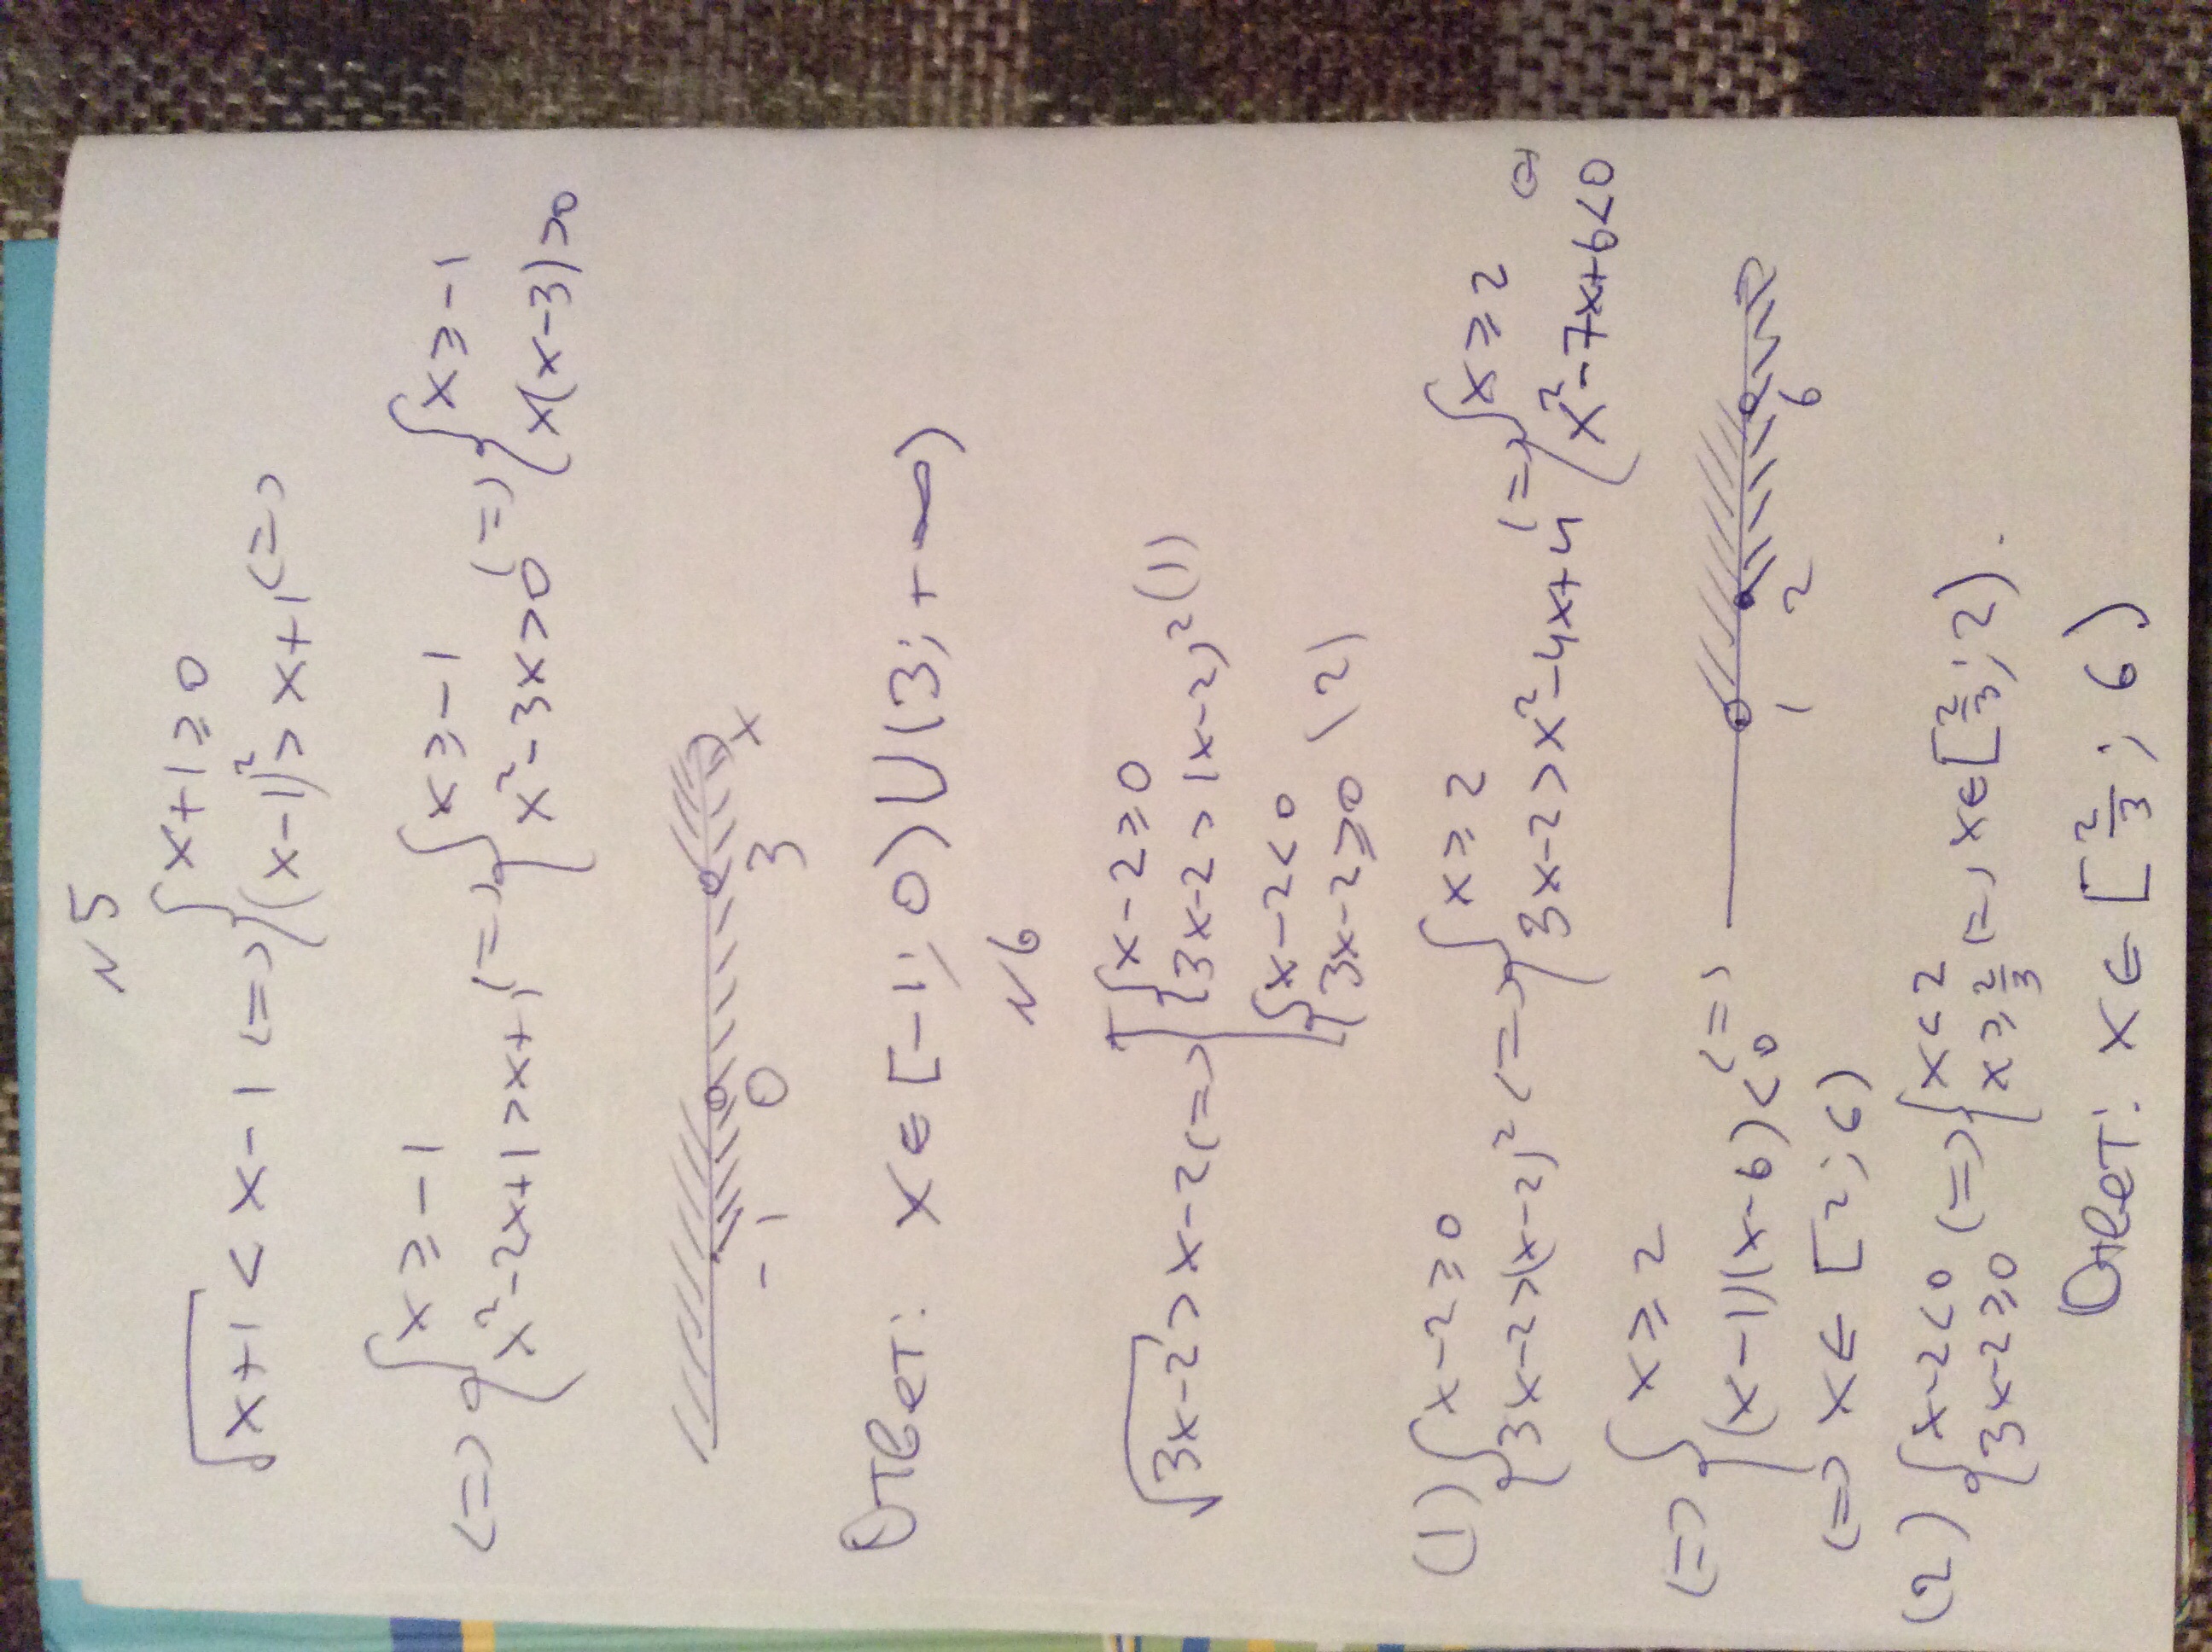 N5
√x+1 < x-1 <=> { x+1≥0
(x-1)²> x+1 <=>
<=> { x≥-1
x²-2x+1>x+1 <=> { x≥-1
x²-3x>0 <=> { x≥-1
x(x-3)>0
-1 0 3 x
Ответ: x∈[-1;0)∪(3;+∞)
N6
√3x-2 > x-2 <=> [ { x-2≥0
3x-2>(x-2)² (1)
{ x-2<0
3x-2≥0 (2)
(1) { x-2≥0
3x-2>(x-2)² <=> { x≥2
3x-2>x²-4x+4 <=> { x≥2
x²-7x+6<0 <=>
<=> { x≥2
(x-1)(x-6)<0 <=>
1 2 6
<=> x∈[2;6)
(2) { x-2<0
3x-2≥0 <=> { x<2
x≥2/3 <=> x∈[2/3;2).
Ответ: x∈[2/3;6)